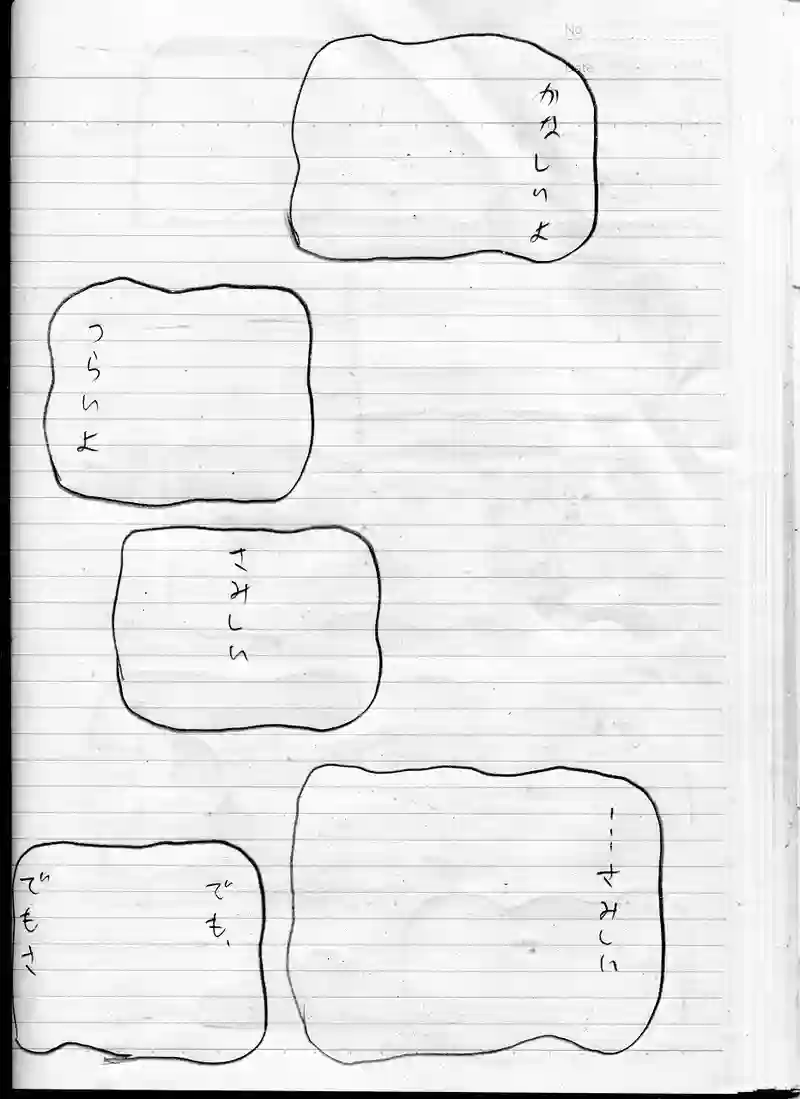 No
Date
かなしいよ
つらいよ
さみしい
……さみしい
でも、
でもさ